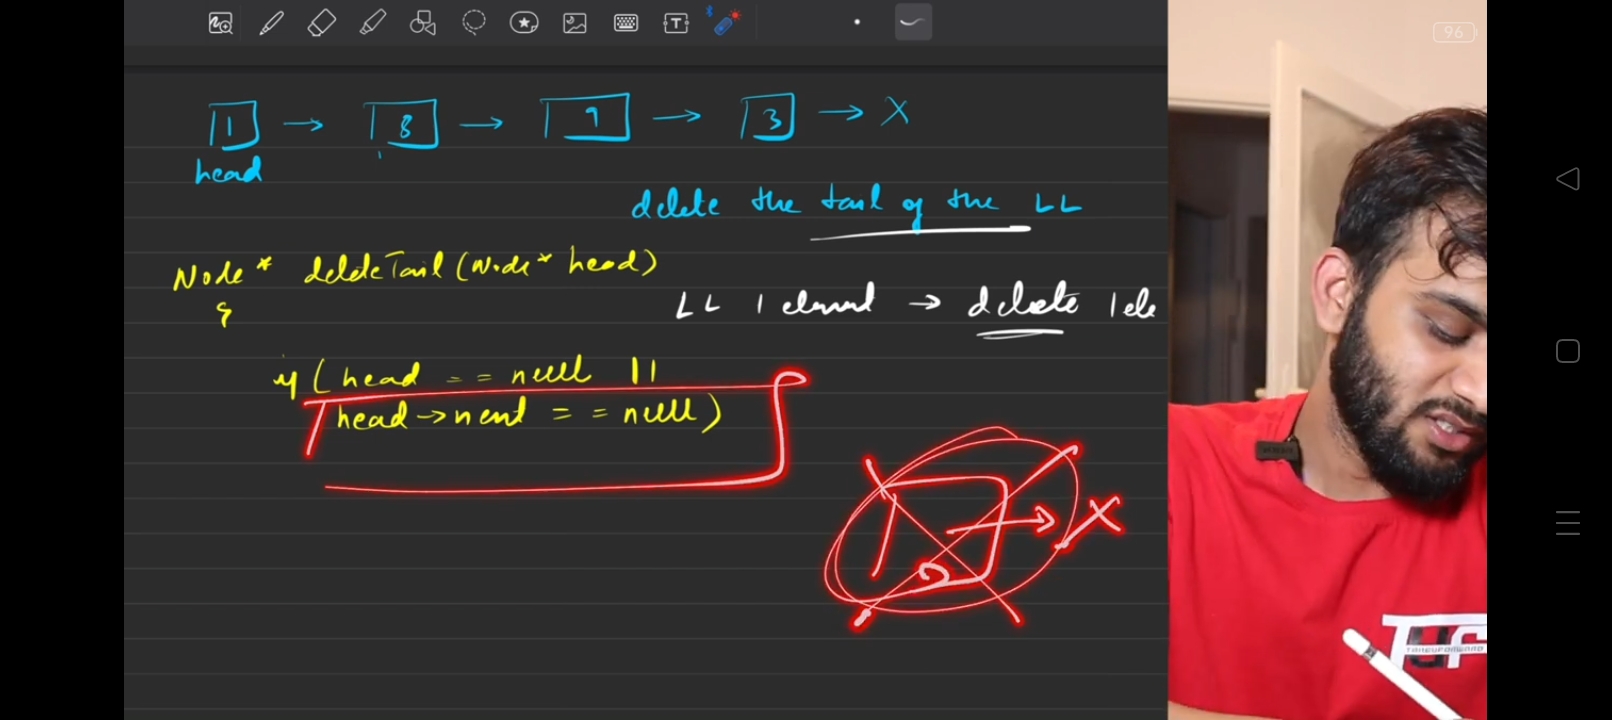 96
1 → 8 → 9 → 3 → X
head
delete the tail of the LL
Node* deleteTail(Node* head)
{
LL 1 element → delete 1 ele
if(head == null ||
head→next == null)
X
TUF
TAKEUFORWARD